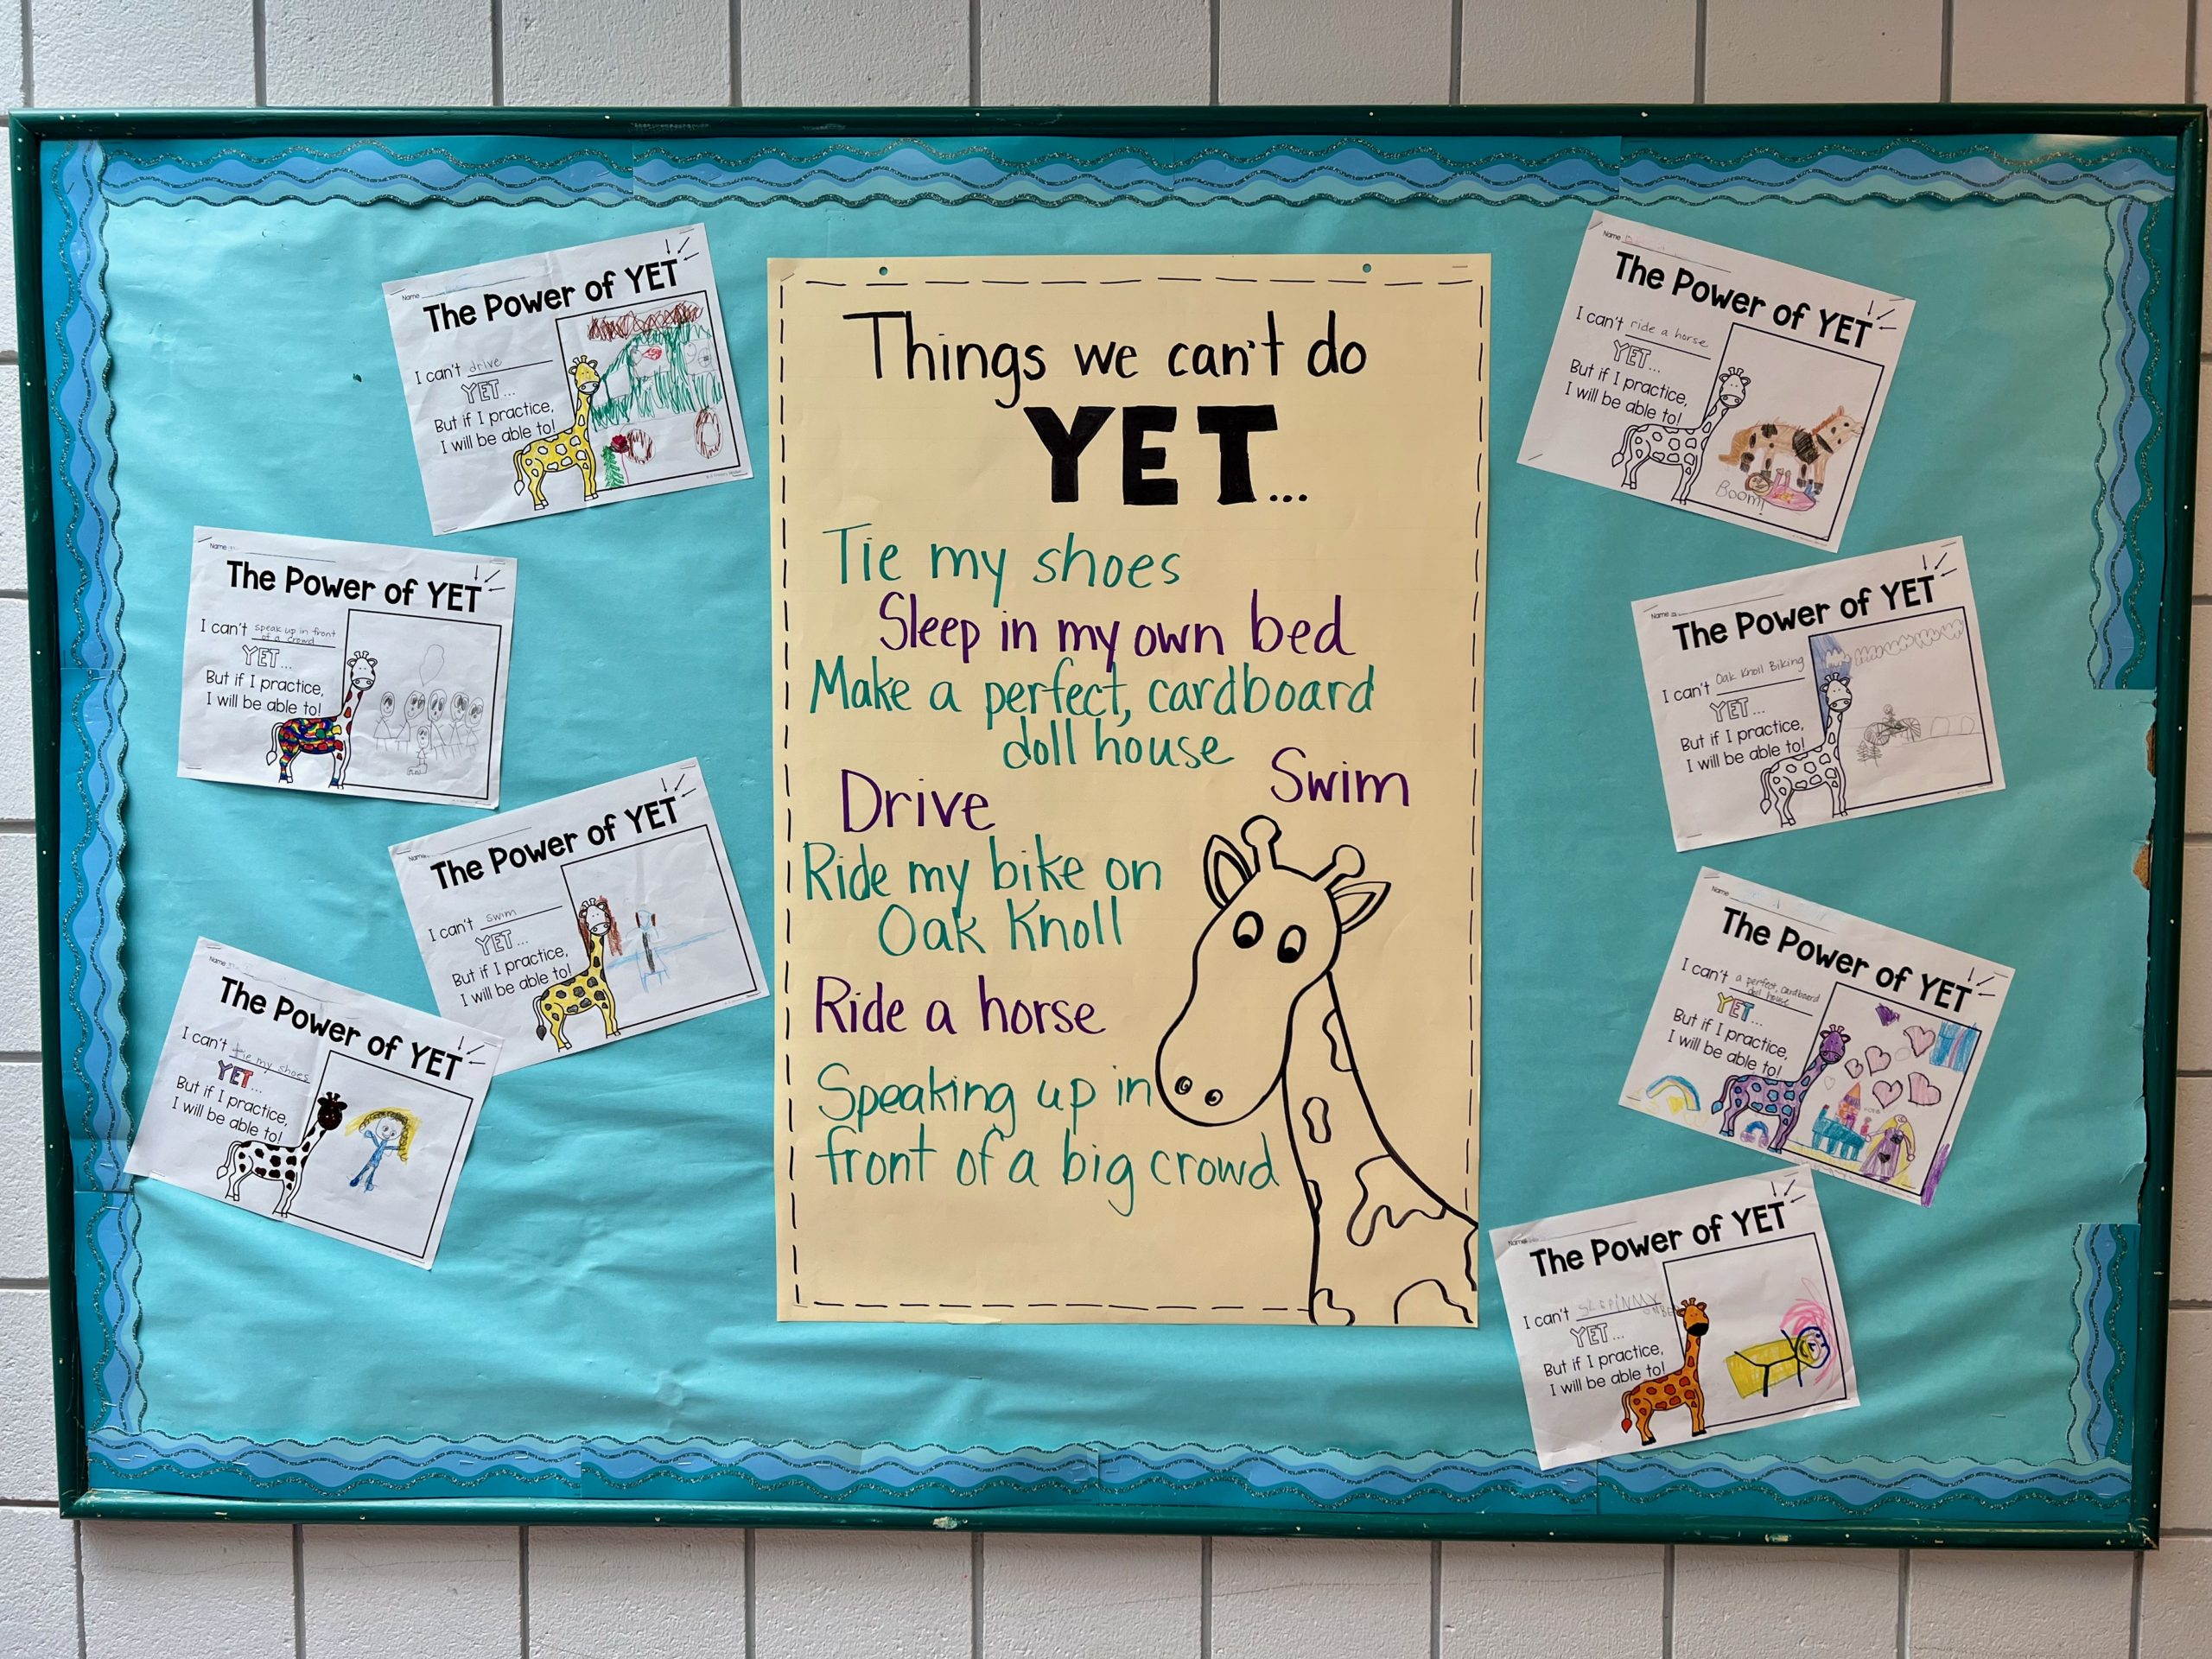 Things we can't do
YET...
Tie my shoes
Sleep in my own bed
Make a perfect, cardboard
doll house
Swim
Drive
Ride my bike on
Oak Knoll
Ride a horse
Speaking up in
front of a big crowd
Name
The Power of YET
I can't drive
YET...
But if I practice,
I will be able to!
Name
The Power of YET
I can't speak up in front
of a crowd
YET...
But if I practice,
I will be able to!
Name
The Power of YET
I can't swim
YET...
But if I practice,
I will be able to!
Name
The Power of YET
I can't tie my shoes
YET...
But if I practice,
I will be able to!
Name
The Power of YET
I can't ride a horse
YET...
But if I practice,
I will be able to!
Boom!
Name
The Power of YET
I can't Oak Knoll Biking
YET...
But if I practice,
I will be able to!
Name
The Power of YET
I can't a perfect, cardboard
doll house
YET...
But if I practice,
I will be able to!
Name
The Power of YET
I can't
YET...
But if I practice,
I will be able to!